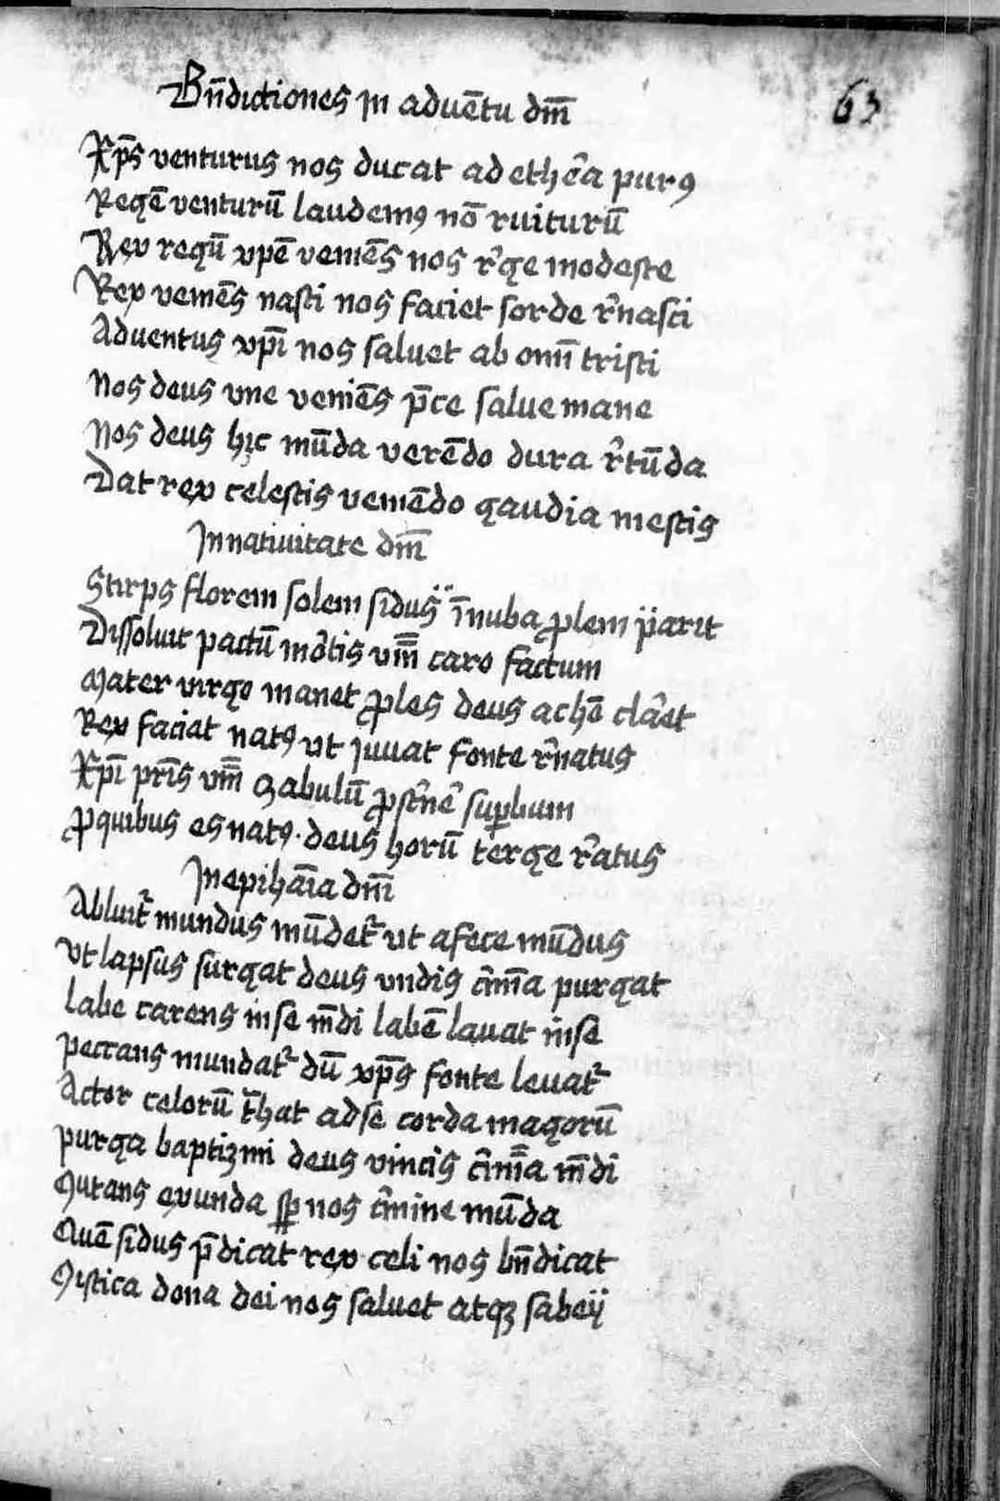 Bn̄dictiones in aduētu dm̄
63
Xp̄s venturus nos ducat ad etheᷓa purꝯ
Regē venturū laudemꝯ nō ruiturū
Rex regū xpē veniēs nos rᷓge modeste
Rex veniēs nasti nos faciet sorde rᷓnasci
Aduentus xpī nos saluet ab omī tristi
Nos deus vne veniēs p̄ce salue mane
Nos deus hic mūda verēdo dura rᷓtūda
Dat rex celestis veniēdo gaudia mestis
In natiuitate dm̄
Stirps florem solem sidus īnuba ꝓlem parit
Dissoluit pactū moᷓtis vm̄ caro factum
Mater virgo manet ꝓles deus achē claᷓet
Rex faciat natꝯ vt iuuat fonte rᷓnatus
Xpī pr̄is vm̄ zabulū ꝓstᷓneᷓ suꝑbum
ꝓ quibus es natꝯ. deus horū terge rᷓatus
In epihāīa dnī
Abluitᷣ mundus mūdetᷣ vt a fece mūdus
vt lapsus surgat deus vndis cᷓmīa purgat
labe carens in se m̄di labē lauat in se
peccans mundatᷣ dū xp̄s fonte leuatᷣ
Actor celorū tᷓhat ad se corda magorū
purga baptizmi deus vincis cᷓmīa m̄di
Mutans ex unda sꝑ nos cᷓmine mūda
Quē sidus p̄dicat rex celi nos bn̄dicat
Mistica dona dei nos saluet atqꝫ sabeij